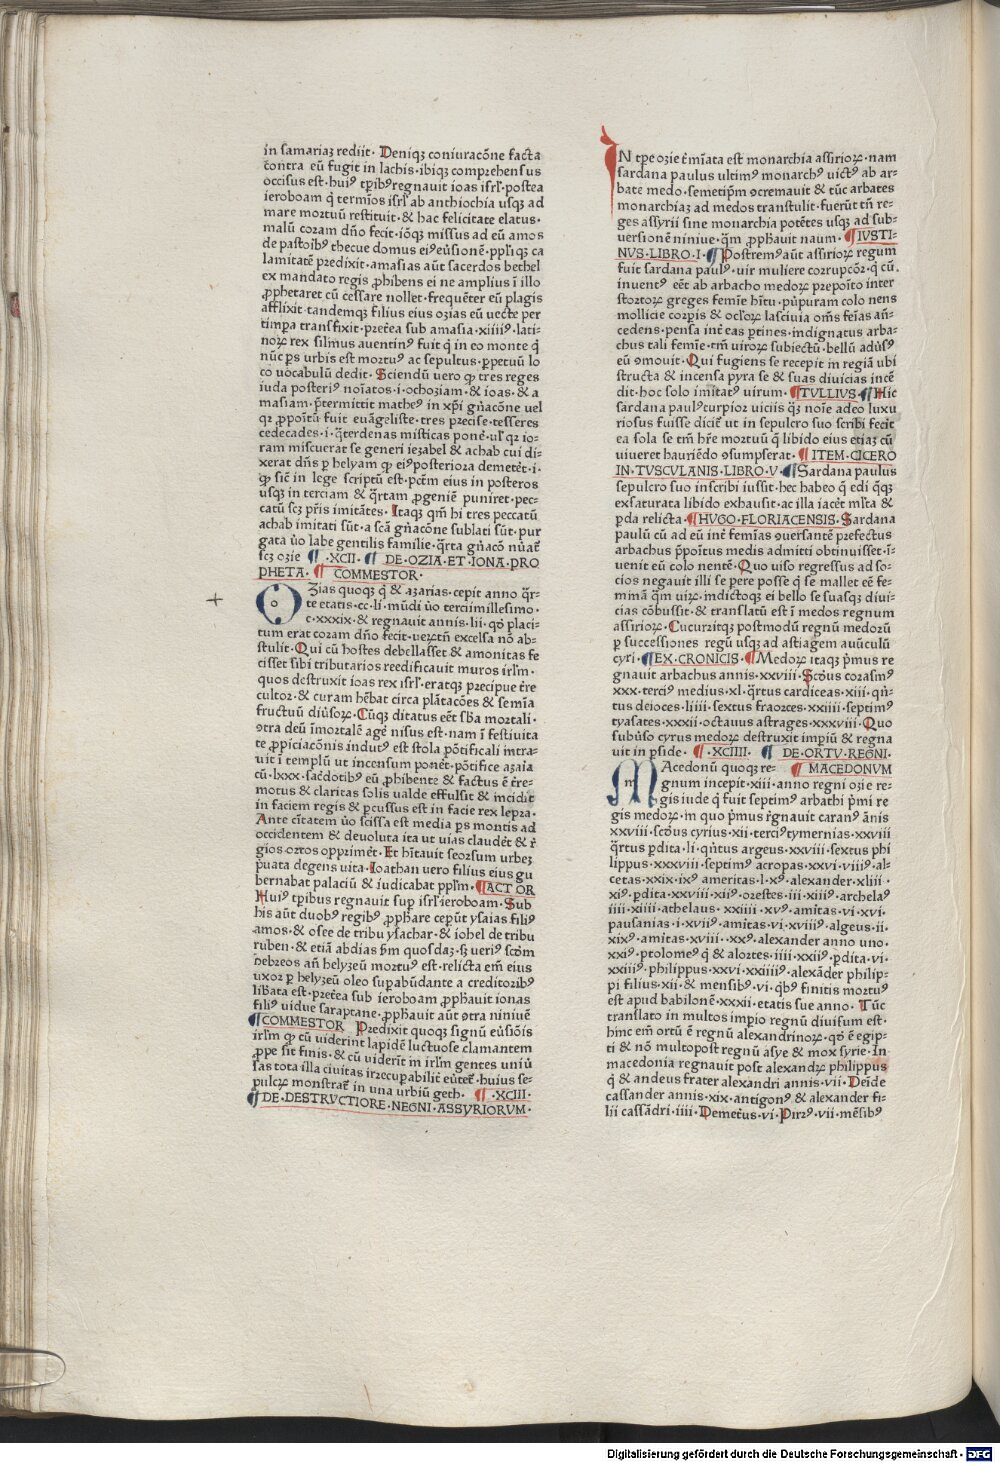 in samariaꝫ rediit· Deniqꝫ coniuracōne facta
contra eū fugit in lachis·ibiqꝫ comprehensus
occisus est·huiꝰ tp̄ibꝰ regnauit ioas isrl̄·postea
ieroboam q̄ termīos isrl̄ ab anthiochia usqꝫ ad
mare mortuū restituit·& hac felicitate elatus·
malū coram dn̄o fecit·iō̄qꝫ missus ad eū amos
de pastoibꝰ thecue domus eiꝰ eūsionē·pp̄l̄iqꝫ ca
lamitatē p̄dixit·amasias aūt sacerdos bethel
ex mandato regis ꝓhibens ei ne amplius ī illo
ꝓphetaret cū cessare nollet·frequēter eū plagis
afflixit·tandemqꝫ filius eius oꝫias eū uecte per
timp̄a transfixit·pret̄ea sub amasia·xiiiiꝰ·lati-
noꝝ rex silmius auentinꝰ fuit q̄ in eo monte q̄
nūc ps urbis est mortuꝰ ac sepultus·ꝑpetuū lo
co uocabulū dedit· Sciendū uero ꝙ tres reges
iuda posteriꝰ noīatos·i·ochoꝫiam·& ioas·& a
masiam·p̄termittit matheꝰ in xp̄i gn̄acōne uel
qꝛ ꝓpoītū fuit euāgeliste·tres precise·tesseres
cedecades·i·q̄terdenas misticas ponē·ul̄ qꝛ io-
ram miscuerat se generi ieꝫabel & achab cui di-
xerat dn̄s ꝑ helyam ꝙ eiꝰ posteriora demetēt·i·
ꝙ sic̄ in lege scriptū est·pc̄tm̄ eius in posteros
usqꝫ in terciam & q̄rtam ꝓgeniē puniret·pec-
catū scꝫ pr̄is imitātes· Itaqꝫ qm̄ hi tres peccatū
achab imitati sūt·a scā gn̄acōne sublati sūt·pur
gata ūo labe gentilis familie·q̄rta gn̄acō nūat̄
scꝫ oꝫie ¶ ·XCII· ¶ DE·OZIA·ET·IONA·PRO
PHETA· ¶ COMMESTOR·
OZias quoqꝫ q̄ & aꝫarias·cepit anno q̄r-
te etatis·cc·li·mūdi ūo terciimillesimo·
c·xxxix·& regnauit annis·lii·qō placi-
tum erat coram dn̄o fecit·uer̄tn̄ excelsa nō ab-
stulit·Qui cū hostes debellasset & amonitas fe
cisset sibi tributarios reedificauit muros ir̄lm̄·
quos destruxit ioas rex isrl̄·eratqꝫ precipue t̄re
cultor·& curam hēbat circa plātacōes & semīa
fructuū diūsoꝝ· Cūqꝫ ditatus eēt sb̄a mortali·
ꝯtra deū īmortalē agē nisus est·nam ī festiuita
te ꝓpiciacōnis indutꝰ est stola pōtificali intra-
uit ī templū ut incensum ponēt·pōtifice aꝫaia
cū·lxxx·sac̄dotibꝰ eū ꝓhibente & factus ē t̄re-
motus & claritas solis ualde effulsit & incidit
in faciem regis & ꝑcussus est in facie rex lepra·
Ante ciūtatem ūo scissa est media ps montis ad
occidentem & deuoluta ita ut uias claudēt & r̄
gios ortos opprimēt· Et hītauit seorsum urbeꝫ
puata degens uita·Ioathan uero filius eius gu
bernabat palaciū & iudicabat pp̄lm̄· ¶ACTOR
Huiꝰ tp̄ibus regnauit sup isrl̄ ieroboam·Sub
his aūt duobꝰ regibꝰ ꝓphare cepūt ysaias filiꝰ
amos·& osee de tribu ysachar·& iohel de tribu
ruben·& etiā abdias s̄m quosdaꝫ·sꝫ ueriꝰ scōm
hebreos an̄ helyꝫeū mortuꝰ est·relicta em̄ eius
uxor ꝑ helyꝫeū oleo supabūdante a creditoribꝰ
libata est·pret̄ea sub ieroboam ꝓphauit ionas
filiꝰ uidue saraptane·ꝓphauit aūt ꝯtra niniuē
¶COMMESTOR Predixit quoqꝫ signū eūsiōis
ir̄lm̄ ꝙ cū uiderint lapidē luctuose clamantem
ꝓpe sit finis·& cū uiderīt in ir̄lm̄ gentes uniū
sas tota illa ciuitas irrecupabilit̄ eūtet̄·huius se-
pulcꝝ monstrat̄ in una urbiū geth· ¶ ·XCIII·
¶DE·DESTRVCTIORE·NEGNI·ASSYRIORVM·
IN tp̄e oꝫie t̄mīata est monarchia assirioꝝ·nam
sardana paulus ultimꝰ monarchꝰ uictꝰ ab ar-
bate medo·semetip̄m ꝯcremauit & tūc arbates
monarchiaꝫ ad medos transtulit·fuerūt tn̄ re-
ges assyrii sine monarchia potētes usqꝫ ad sub-
uersionē niniue·q̄m ꝓphauit naum· ¶IVSTI-
NVS·LIBRO·I· ¶Postremꝰ aūt assirioꝝ regum
fuit sardana paulꝰ·uir muliere corrupcōr·q̄ cū·
inuentꝰ eēt ab arbacho medoꝝ prepoīto inter
stortoꝝ greges femīe hītu·pūpuram colo nens
mollicie corꝑis & oclōꝝ lasciuia om̄s feīas āñ-
cedens·pensa int̄ eas ꝑtines·indignatus arba-
chus tali femīe·tm̄ uiroꝝ subiectū·bellū adūsꝰ
eū ꝯmouit·Qui fugiens se recepit in regiā ubi
structa & incensa pyra se & suas diuicias incē
dit·hoc solo imitatꝰ uirum· ¶TVLLIVS·¶Hic
sardana paulꝰ turpior uiciis qꝫ noīe adeo luxu
riosus fuisse dicit̄ ut in sepulcro suo scribi fecit
ea sola se tm̄ hr̄e mortuū q̄ libido eius etiaꝫ cū
uiueret hauriēdo ꝯsumpserat· ¶ITEM·CICERO
IN·TVSCVLANIS·LIBRO·V·¶Sardana paulus
sepulcro suo inscribi iussit·hec habeo q̄ edi q̄qꝫ
exsaturata libido exhausit·ac illa iacēt ml̄ta &
p̄da relicta·¶HVGO·FLORIACENSIS·Sardana
paulū cū ad eū int̄ femīas ꝯuersantē prefectus
arbachus p̄poītus medis admitti obtinuisset·ī-
uenit eū colo nentē·Quo uiso regressus ad so-
cios negauit illi se pere posse q̄ se mallet eē fe-
minā qm̄ uiꝝ·indictoqꝫ ei bello se suasqꝫ diui-
cias cōbussit·& translatū est ī medos regnum
assirioꝝ·Cucurritqꝫ postmodū regnū medorū
ꝑ successiones regū usqꝫ ad astiagem auūculū
cyri·¶EX·CRONICIS·¶Medoꝝ itaqꝫ p̄mus re
gnauit arbachus annis·xxviii·Scōus corasmꝰ
xxx·terciꝰ medius·xl·q̄rtus cardiceas·xiii·qn̄-
tus deioces·liiii·sextus fraortes·xxiiii·septimꝰ
tyasates·xxxii·octauus astrages·xxxviii·Quo
subūso cyrus medoꝝ destruxit impiū & regna
uit in pside· ¶·XCIIII· ¶ DE·ORTV·REGNI·
MAcedonū quoqꝫ re- ¶ MACEDONVM
gnum incepit·xiii·anno regni oꝫie re-
gis iude q̄ fuit septimꝰ arbathi p̄mi re
gis medoꝝ·in quo p̄mus r̄gnauit caranꝰ ānis
xxviii·scōus cyrius·xii·terciꝰ tymernias·xxviii
q̄rtus pdita·li·qn̄tus argeus·xxviii·sextus phi
lippus·xxxviii·septimꝰ acropas·xxvi·viiiꝰ·al-
cetas·xxix·ixꝰ ameritas·l·xꝰ·alexander·xliii·
xiꝰ·pdita·xxviii·xiiꝰ·orestes·iii·xiiiꝰ·archelaꝰ
iiii·xiiii·athelaus·xxiiii·xvꝰ·amitas·vi·xvi·
pausanias·i·xviiꝰ·amitas·vi·xviiiꝰ·algeus·ii·
xixꝰ·amitas·xviii··xxꝰ·alexander anno uno·
xxiꝰ·ptolomeꝰ q̄ & alortes·iiii·xxiiꝰ·pdita·vi·
xxiiiꝰ·philippus·xxvi·xxiiiiꝰ·alexāder philip-
pi filius·xii·& mensibꝰ·vi·qb̄ꝰ finitis mortuꝰ
est apud babilonē·xxxii·etatis sue anno· Tūc
translato in multos impio regnū diuisum est·
hinc em̄ ortū ē regnū alexandrinoꝝ·qō ē egip-
ti & nō multopost regnū asye & mox syrie·In
macedonia regnauit post alexandꝝ philippus
q̄ & andeus frater alexandri annis·vii·Deīde
cassander annis·xix·antigonꝰ & alexander fi-
lii cassādri·iiii·Demet̄us·vi·Pirrꝰ·vii·mēsibꝰ
Digitalisierung gefördert durch die Deutsche Forschungsgemeinschaft · DFG